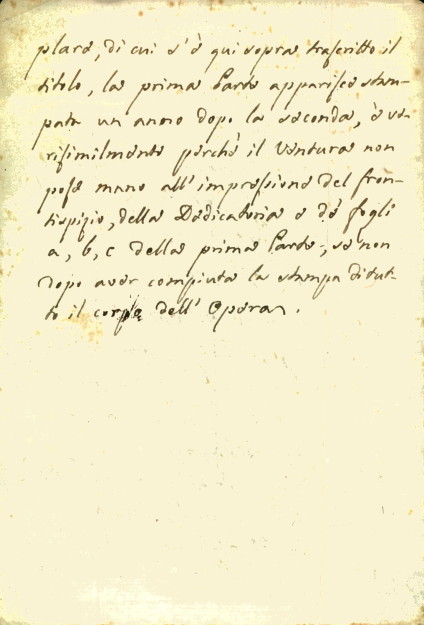 plare, di cui s'è qui sopra trascritto il
titolo, la prima Parte apparisce stam-
pata un anno dopo la seconda, è ve-
risimilmente perchè il Ventura non
pose mano all'impressione del fron-
tispizio, della Dedicatoria e de' fogli
a, b, c della prima Parte, se non
dopo aver compiuta la stampa di tut-
to il corpo dell'Opera.